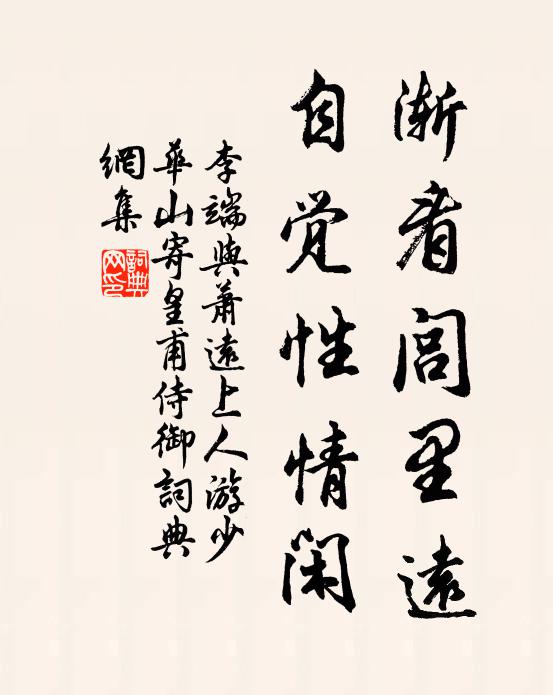 渐看闾里远
自觉性情闲
李端與蕭遠上人游少
華山寄皇甫侍御詞典
網集
詞典網印